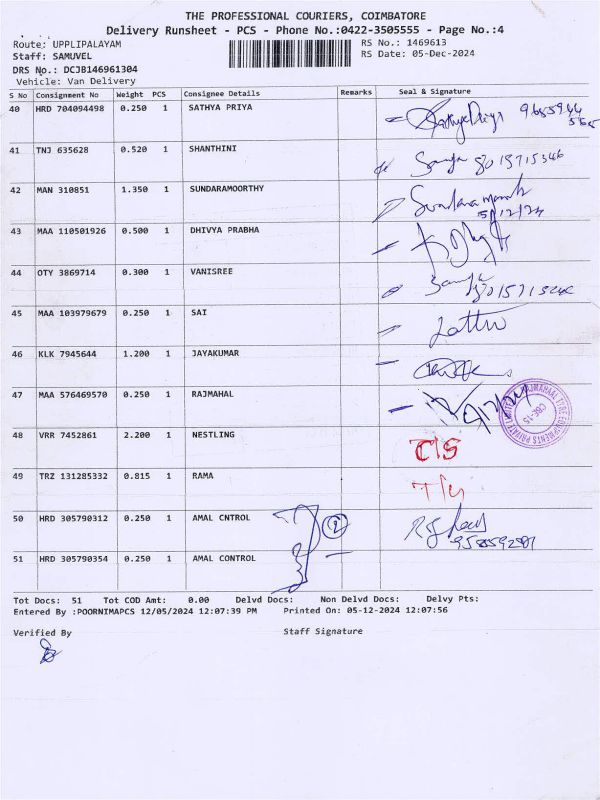 THE PROFESSIONAL COURIERS, COIMBATORE
Delivery Runsheet - PCS - Phone No.:0422-3505555 - Page No.:4
Route: UPPLIPALAYAM
RS No.: 1469613
Staff: SAMUVEL
RS Date: 05-Dec-2024
DRS No.: DCJB146961304
Vehicle: Van Delivery
S No Consignment No Weight PCS Consignee Details Remarks Seal & Signature
40 HRD 704094498 0.250 1 SATHYA PRIYA SathyaPriya
41 TNJ 635628 0.520 1 SHANTHINI 8015715346
42 MAN 310851 1.350 1 SUNDARAMOORTHY
5/12/24
43 MAA 110501926 0.500 1 DHIVYA PRABHA
44 OTY 3869714 0.300 1 VANISREE
45 MAA 103979679 0.250 1 SAI
46 KLK 7945644 1.200 1 JAYAKUMAR
47 MAA 576469570 0.250 1 RAJMAHAL
48 VRR 7452861 2.200 1 NESTLING C/S
49 TRZ 131285332 0.815 1 RAMA
50 HRD 305790312 0.250 1 AMAL CNTROL 2
51 HRD 305790354 0.250 1 AMAL CONTROL
Tot Docs: 51 Tot COD Amt: 0.00 Delvd Docs: Non Delvd Docs: Delvy Pts:
Entered By :POORNIMAPCS 12/05/2024 12:07:39 PM Printed On: 05-12-2024 12:07:56
Verified By Staff Signature